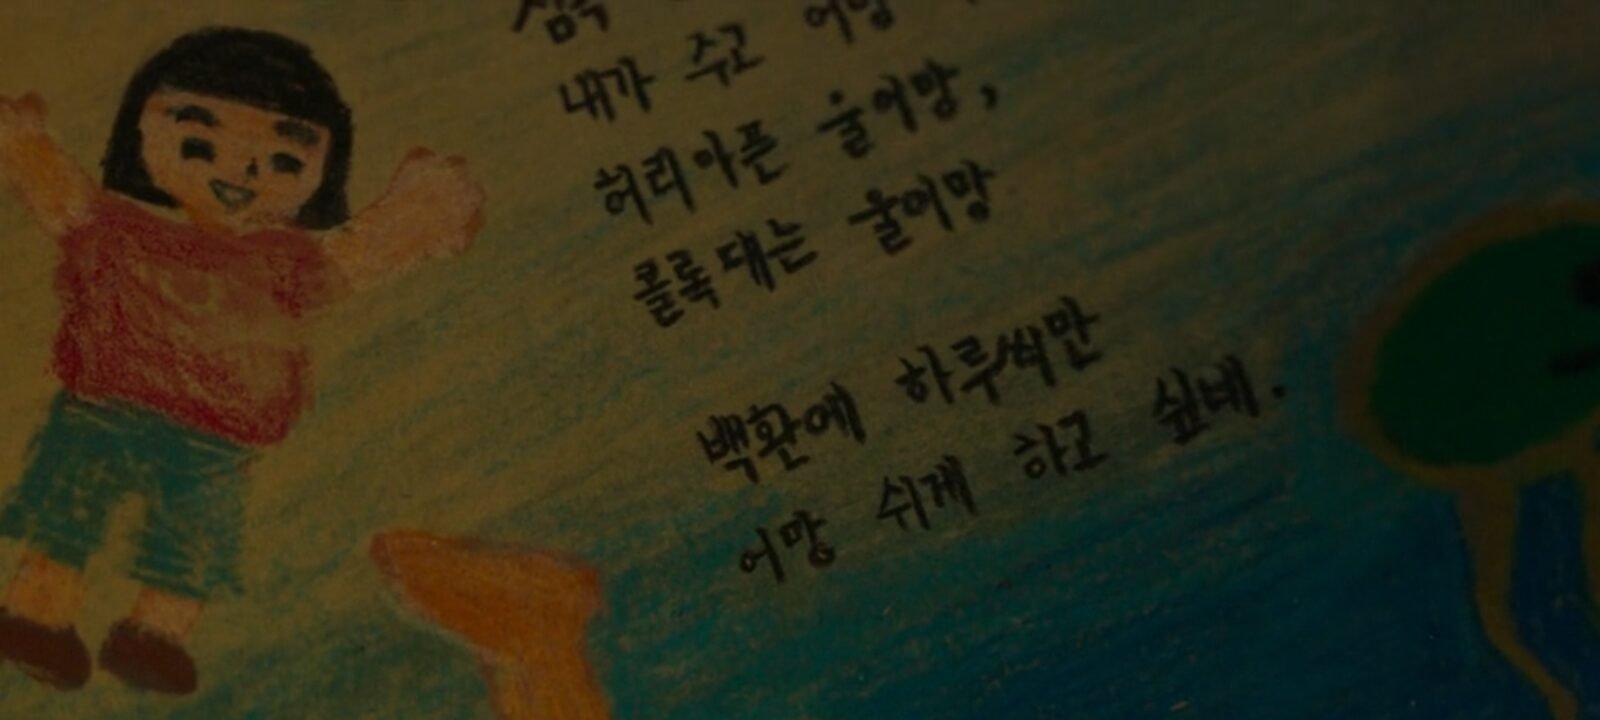 내가 주고 어망
허리아픈 울어망,
콜록대는 울어망
백환에 하루씩만
어망 쉬게 하고 싶네.